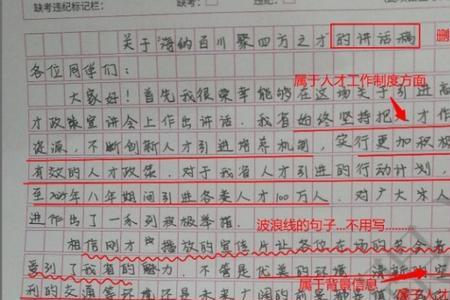 缺考违纪标记栏: 缺考: 违纪:
关于"海纳百川 聚四方之才"的讲话稿
各位同学们:
属于人才工作制度方面
大家好!首先我很荣幸能够在这场关于引进高
才政策宣讲会上作出讲话。我省始终坚持把人才作
资源,不断创新人才引进培养机制,实行更加积极
有效的人才政策。对于我省人才引进的行动计划,
至2025年八年期间引进各类人才100万人。对广大人
进作出了一系列积极举措。
波浪线的句子...不用写......
相信刚才播放的宣传片让各位在场的
受到了我省的魅力,不仅是优美的环境,清新
属于背景信息
利的交通